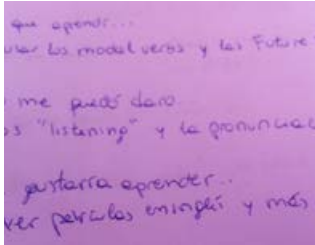 que aprendí...
usar los modal verbs y los Future
me quedó claro
os "listening" y la pronunciac
gustaría aprender..
ver películas en inglés y más